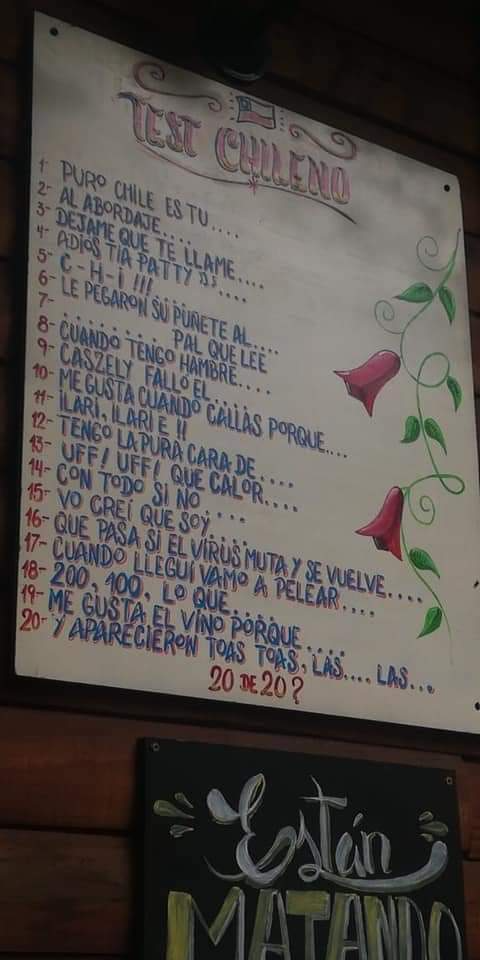 TEST CHILENO
1- PURO CHILE ES TU....
2- AL ABORDAJE....
3- DEJAME QUE TE LLAME....
4- ADIOS TIA PATTY ♫....
5- C-H-I !!! .....
6- LE PEGARON SU PUÑETE AL....
7- ........ PAL QUE LEE
8- CUANDO TENGO HAMBRE....
9- CASZELY FALLO EL....
10- ME GUSTA CUANDO CALLAS PORQUE....
11- ILARI, ILARI E !!
12- TENGO LA PURA CARA DE....
13- UFF! UFF! QUE CALOR....
14- CON TODO SI NO ....
15- YO CREÍ QUE SOY....
16- QUE PASA SI EL VÍRUS MUTA Y SE VUELVE....
17- CUANDO LLEGUÍ VAMO A PELEAR....
18- 200, 100, LO QUE....
19- ME GUSTA EL VINO PORQUE....
20- Y APARECIERON TOAS TOAS, LAS.... LAS...
20 DE 20?
Están
MATANDO